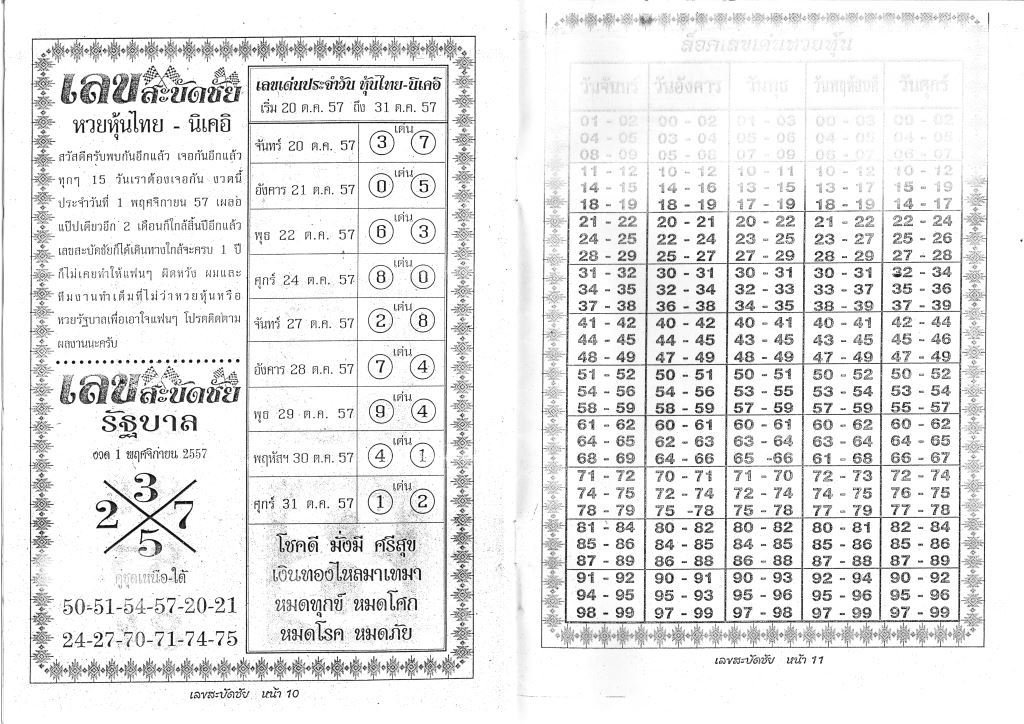 เลข
สะบัดชัย
หวยหุ้นไทย - นิเคอิ
สวัสดีครับพบกันอีกแล้ว เจอกันอีกแล้ว
ทุกๆ 15 วันเราต้องเจอกัน งวดนี้
ประจำวันที่ 1 พฤศจิกายน 57 เผลอ
แป๊ปเดียวอีก 2 เดือนก็ใกล้สิ้นปีอีกแล้ว
เลขสะบัดชัยก็ได้เดินทางใกล้จะครบ 1 ปี
ก็ไม่เคยทำให้แฟนๆ ผิดหวัง ผมและ
ทีมงานทำเต็มที่ไม่ว่าหวยหุ้นหรือ
หวยรัฐบาลเพื่อเอาใจแฟนๆ โปรดติดตาม
ผลงานนะครับ
เลข
สะบัดชัย
รัฐบาล
งวด 1 พฤศจิกายน 2557
3
2 7
5
คู่ชุดเหนือ-ใต้
50-51-54-57-20-21
24-27-70-71-74-75
เลขเด่นประจำวัน หุ้นไทย-นิเคอิ
เริ่ม 20 ต.ค. 57 ถึง 31 ต.ค. 57
จันทร์ 20 ต.ค. 57 3 เด่น 7
อังคาร 21 ต.ค. 57 0 เด่น 5
พุธ 22 ต.ค. 57 6 เด่น 3
ศุกร์ 24 ต.ค. 57 8 เด่น 0
จันทร์ 27 ต.ค. 57 2 เด่น 8
อังคาร 28 ต.ค. 57 7 เด่น 4
พุธ 29 ต.ค. 57 9 เด่น 4
พฤหัสฯ 30 ต.ค. 57 4 เด่น 1
ศุกร์ 31 ต.ค. 57 1 เด่น 2
โชคดี มั่งมี ศรีสุข
เงินทองไหลมาเทมา
หมดทุกข์ หมดโศก
หมดโรค หมดภัย
เลขสะบัดชัย หน้า 10
ล็อคเลขเด่นหวยหุ้น
วันจันทร์ วันอังคาร วันพุธ วันพฤหัสบดี วันศุกร์
01 - 02 00 - 02 00 - 03 00 - 02 00 - 02
04 - 05 03 - 04 05 - 06 04 - 05 04 - 05
08 - 09 05 - 08 07 - 09 06 - 07 06 - 07
11 - 12 10 - 12 10 - 11 10 - 12 10 - 12
14 - 15 14 - 16 13 - 15 13 - 17 15 - 19
18 - 19 18 - 19 17 - 19 18 - 19 14 - 17
21 - 22 20 - 21 20 - 22 21 - 22 22 - 24
24 - 25 22 - 24 23 - 25 23 - 27 25 - 26
28 - 29 25 - 27 27 - 29 28 - 29 27 - 28
31 - 32 30 - 31 30 - 31 30 - 31 32 - 34
34 - 35 32 - 34 32 - 33 33 - 37 35 - 36
37 - 38 36 - 38 34 - 35 38 - 39 37 - 39
41 - 42 40 - 42 40 - 41 40 - 41 42 - 44
44 - 45 44 - 45 43 - 45 43 - 45 45 - 46
48 - 49 47 - 49 48 - 49 47 - 49 47 - 49
51 - 52 50 - 51 50 - 51 50 - 52 50 - 52
54 - 56 54 - 56 53 - 55 53 - 54 53 - 54
58 - 59 58 - 59 57 - 59 57 - 59 55 - 57
61 - 62 60 - 61 60 - 61 60 - 62 60 - 62
64 - 65 62 - 63 63 - 64 63 - 64 64 - 65
68 - 69 64 - 66 65 -66 61 - 68 66 - 67
71 - 72 70 - 71 71 - 70 72 - 73 72 - 74
74 - 75 72 - 74 72 - 74 74 - 75 76 - 75
78 - 79 75 -78 75 - 78 77 - 79 77 - 78
81 - 84 80 - 82 80 - 82 80 - 81 82 - 84
85 - 86 84 - 85 84 - 85 85 - 86 85 - 86
87 - 89 86 - 88 86 - 88 87 - 88 87 - 89
91 - 92 90 - 91 90 - 93 92 - 94 90 - 92
94 - 95 95 - 93 95 - 96 95 - 96 95 - 96
98 - 99 97 - 99 97 - 98 97 - 99 97 - 99
เลขสะบัดชัย หน้า 11